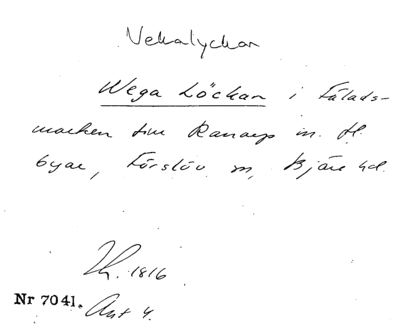 Vekalyckan
Wega Löckan i Fälads-
marken till Ranarp m. fl.
byar, Förslöv m, Bjäre hd.
1816
Nr 7041. Akt 4.